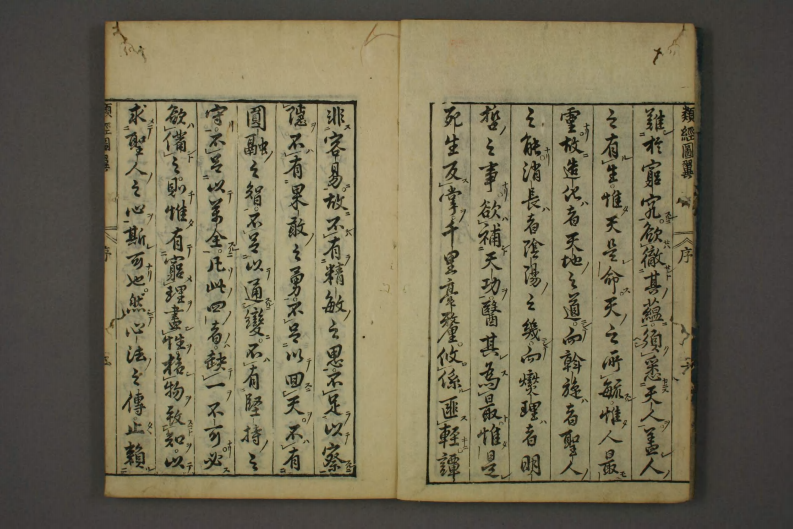 類經圖翼
序
難於窮究欲徹其蘊須悉天人蓋人
之有生惟天是命天之所毓惟人最
靈故造化者天地之道而斡旋者聖人
之能消長者陰陽之幾而燮理者明
哲之事欲補天功醫其為最惟是
死生反掌千里毫釐攸係匪輕譚
非容易故不有精敏之思不足以察
隱不有果敢之勇不足以回天不有
圓融之智不足以通變不有堅持之
守不足以萬全凡此四者缺一不可必
欲備之則惟有窮理盡性格物致知以
求聖人之心斯可也然心法之傳止賴
類經圖翼
序